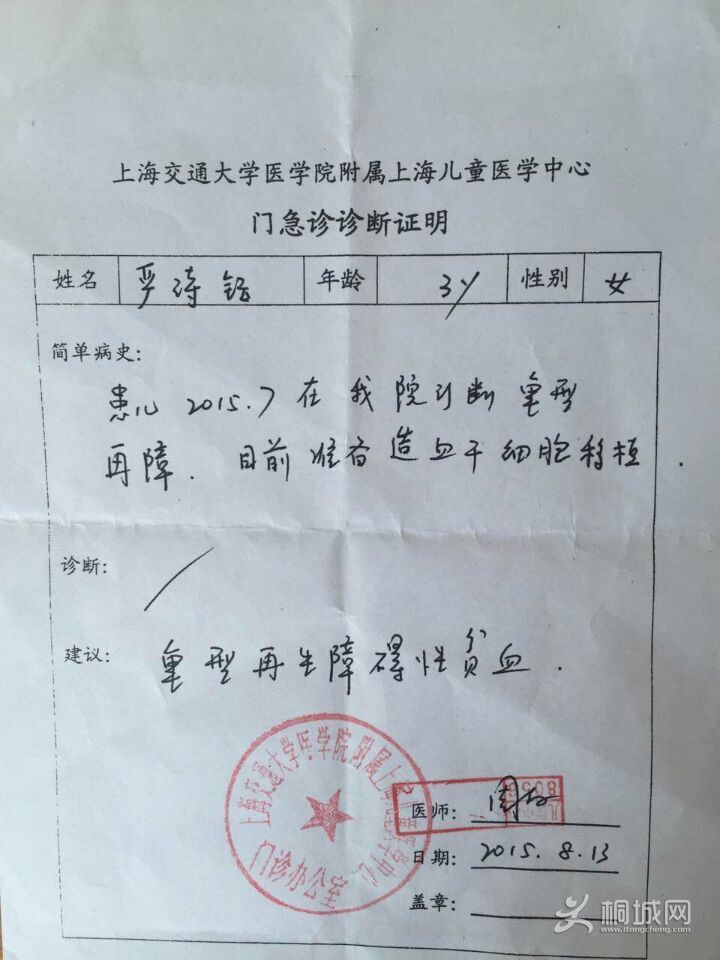 上海交通大学医学院附属上海儿童医学中心
门急诊诊断证明
姓名 严诗钰 年龄 3y 性别 女
简单病史:
患儿 2015.7 在我院诊断重型
再障. 目前准备造血干细胞移植.
诊断: /
建议: 重型再生障碍性贫血.
上海交通大学医学院附属上海儿童医学中心
门诊办公室
医师: 周
日期: 2015.8.13
盖章:
桐城网
www.itongcheng.com